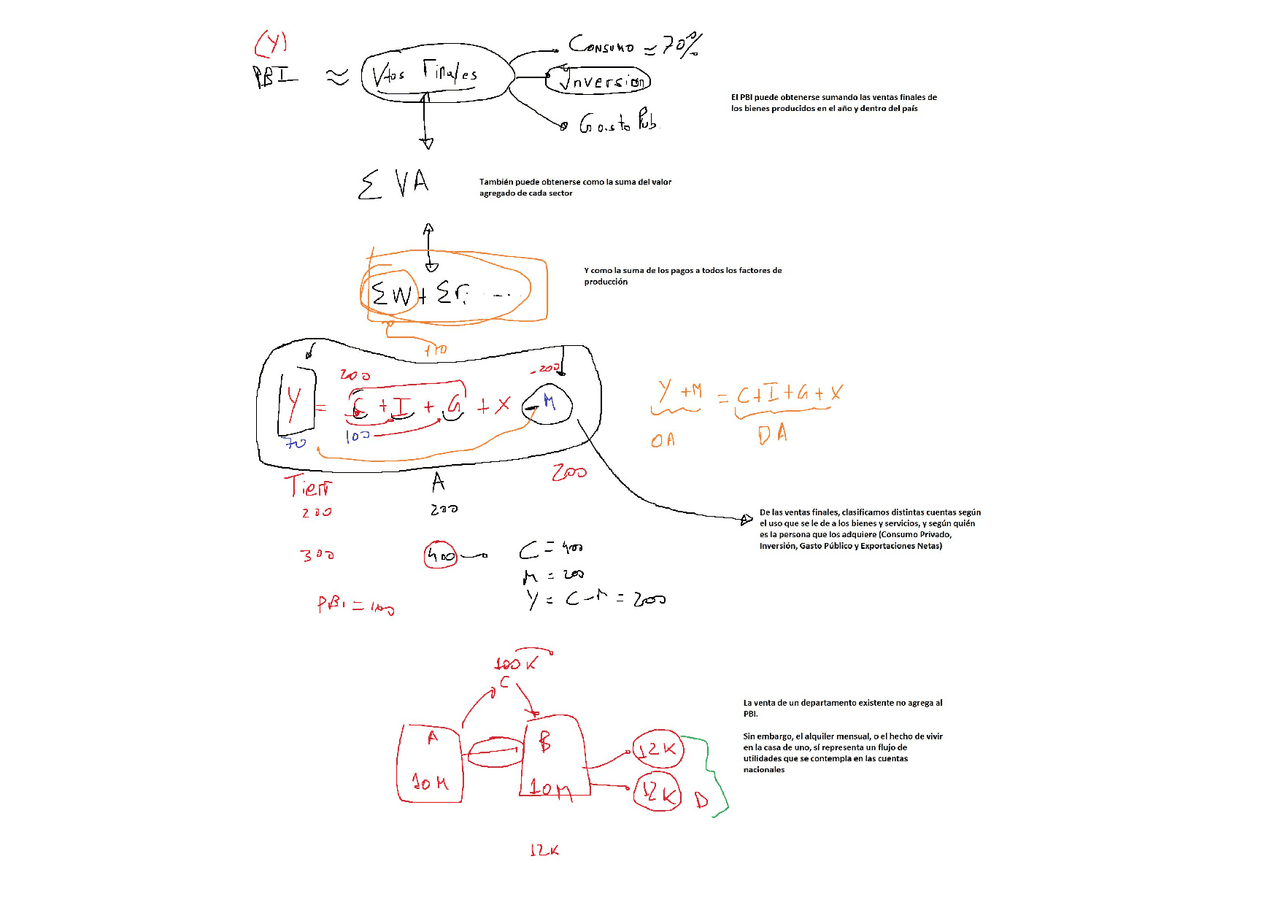 (Y)
PBI ≈ Vtas Finales
Consumo ≈ 70%
Inversion
Gasto Pub.
El PBI puede obtenerse sumando las ventas finales de
los bienes producidos en el año y dentro del país
Σ VA
También puede obtenerse como la suma del valor
agregado de cada sector
Y como la suma de los pagos a todos los factores de
producción
ΣW + Σr. ...
200
-200
Y = C + I + G + X - M
70
100
Y + M = C + I + G + X
OA
DA
A
200
200
200
300
400
C = 400
M = 200
Y = C - M = 200
PBI = 100
De las ventas finales, clasificamos distintas cuentas según
el uso que se le de a los bienes y servicios, y según quién
es la persona que los adquiere (Consumo Privado,
Inversión, Gasto Público y Exportaciones Netas)
100K
C
A
B
10M
10M
12K
12K
D
12K
La venta de un departamento existente no agrega al
PBI.
Sin embargo, el alquiler mensual, o el hecho de vivir
en la casa de uno, sí representa un flujo de
utilidades que se contempla en las cuentas
nacionales